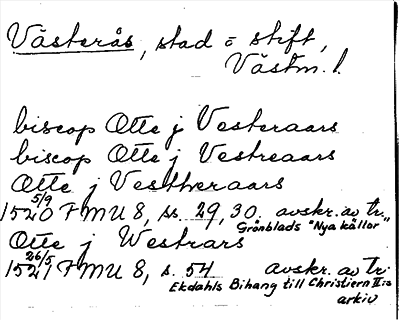 Västerås, stad o stift,
Västm. l.
biscop Otte j Vesteraars
biscop Otte j Vestreaars
Otte j Vestheraars
5/9
1520 FMU 8, ss. 29, 30. avskr. av tr.
Grönblads "Nya källor"
Otte j Westrars
26/5
1521 FMU 8, s. 54 avskr. av tr.
Ekdahls Bihang till Christiern II:s
arkiv